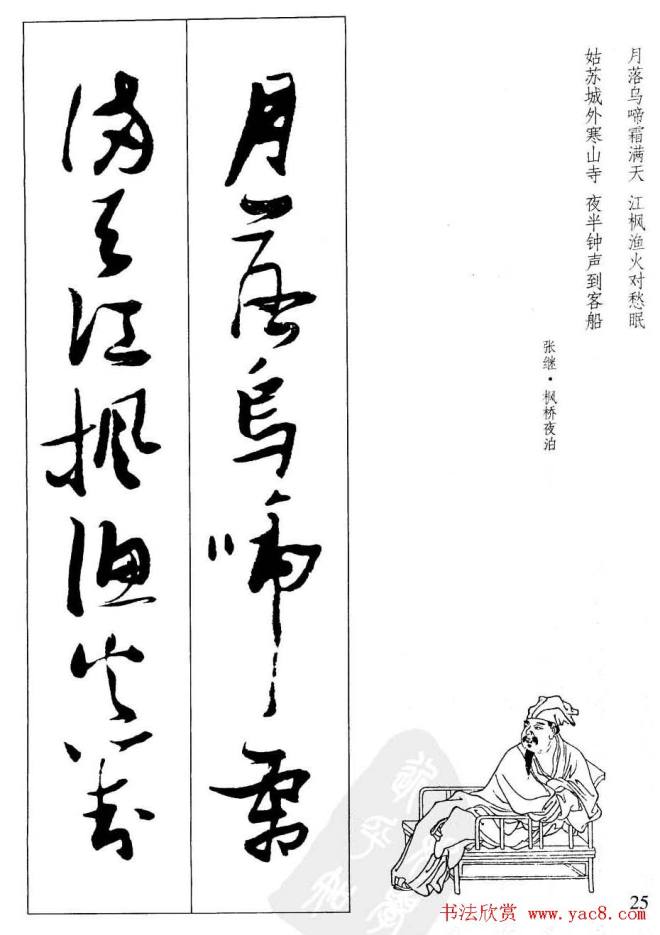 月落乌啼霜满天 江枫渔火对愁眠
姑苏城外寒山寺 夜半钟声到客船
张继·枫桥夜泊
月落烏啼霜
滿天江楓漁火對
25
书法欣赏 www.yac8.com